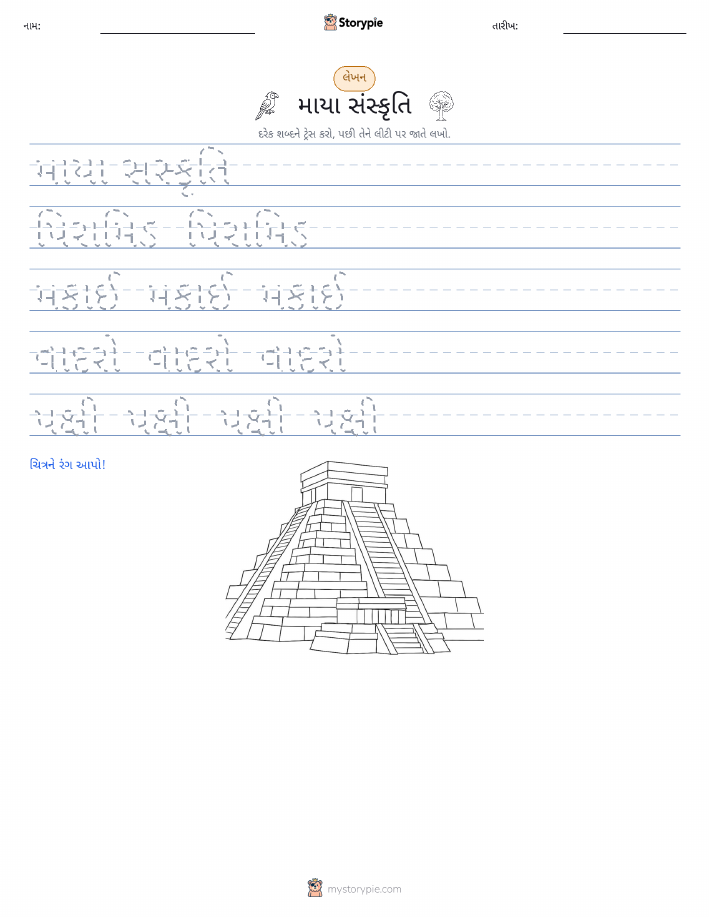 નામ:
Storypie
તારીખ:
લેખન
માયા સંસ્કૃતિ
દરેક શબ્દને ટ્રેસ કરો, પછી તેને લીટી પર જાતે લખો.
માયા સંસ્કૃતિ
પિરામિડ પિરામિડ
મકાઈ મકાઈ મકાઈ
વાદરો વાદરો વાદરો
પક્ષી પક્ષી પક્ષી પક્ષી
ચિત્રને રંગ આપો!
mystorypie.com